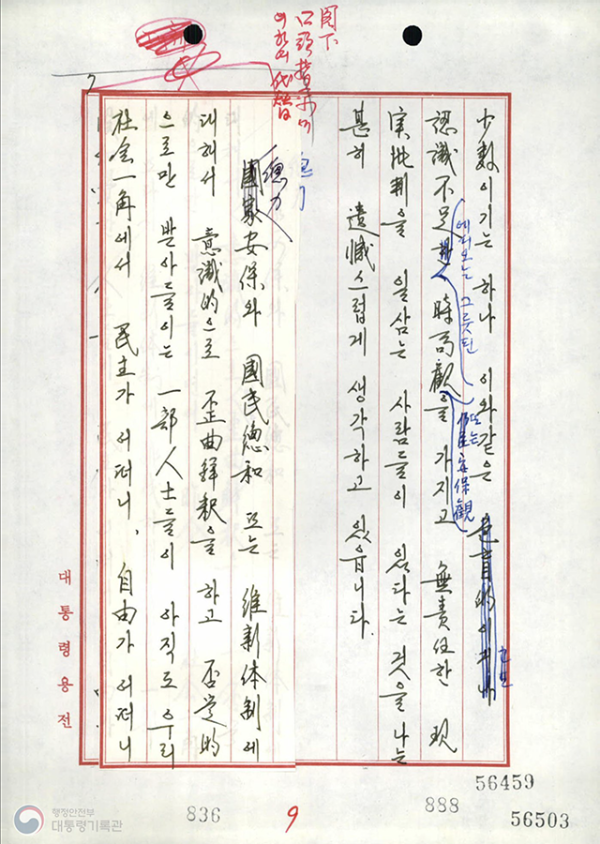 閣下
口頭指示에
의하여 代替함
少數이기는 하나 이와같은 色盲的이거나
혹은
認識不足 時局觀을 가지고 無責任한 現
에서 오는 그릇된
또는 安保觀
実批判을 일삼는 사람들이 있다는 것을 나는
甚히 遺憾스럽게 생각하고 있읍니다.
國家安保와 國民總和 또는 維新体制에
總力
대해서 意識的으로 歪曲解釈을 하고 否定的
으로만 받아들이는 一部人士들이 아직도 우리
社会一角에서 民主가 어떠니, 自由가 어떠니
대통령용전
56459
836
9
888
56503
행정안전부
대통령기록관